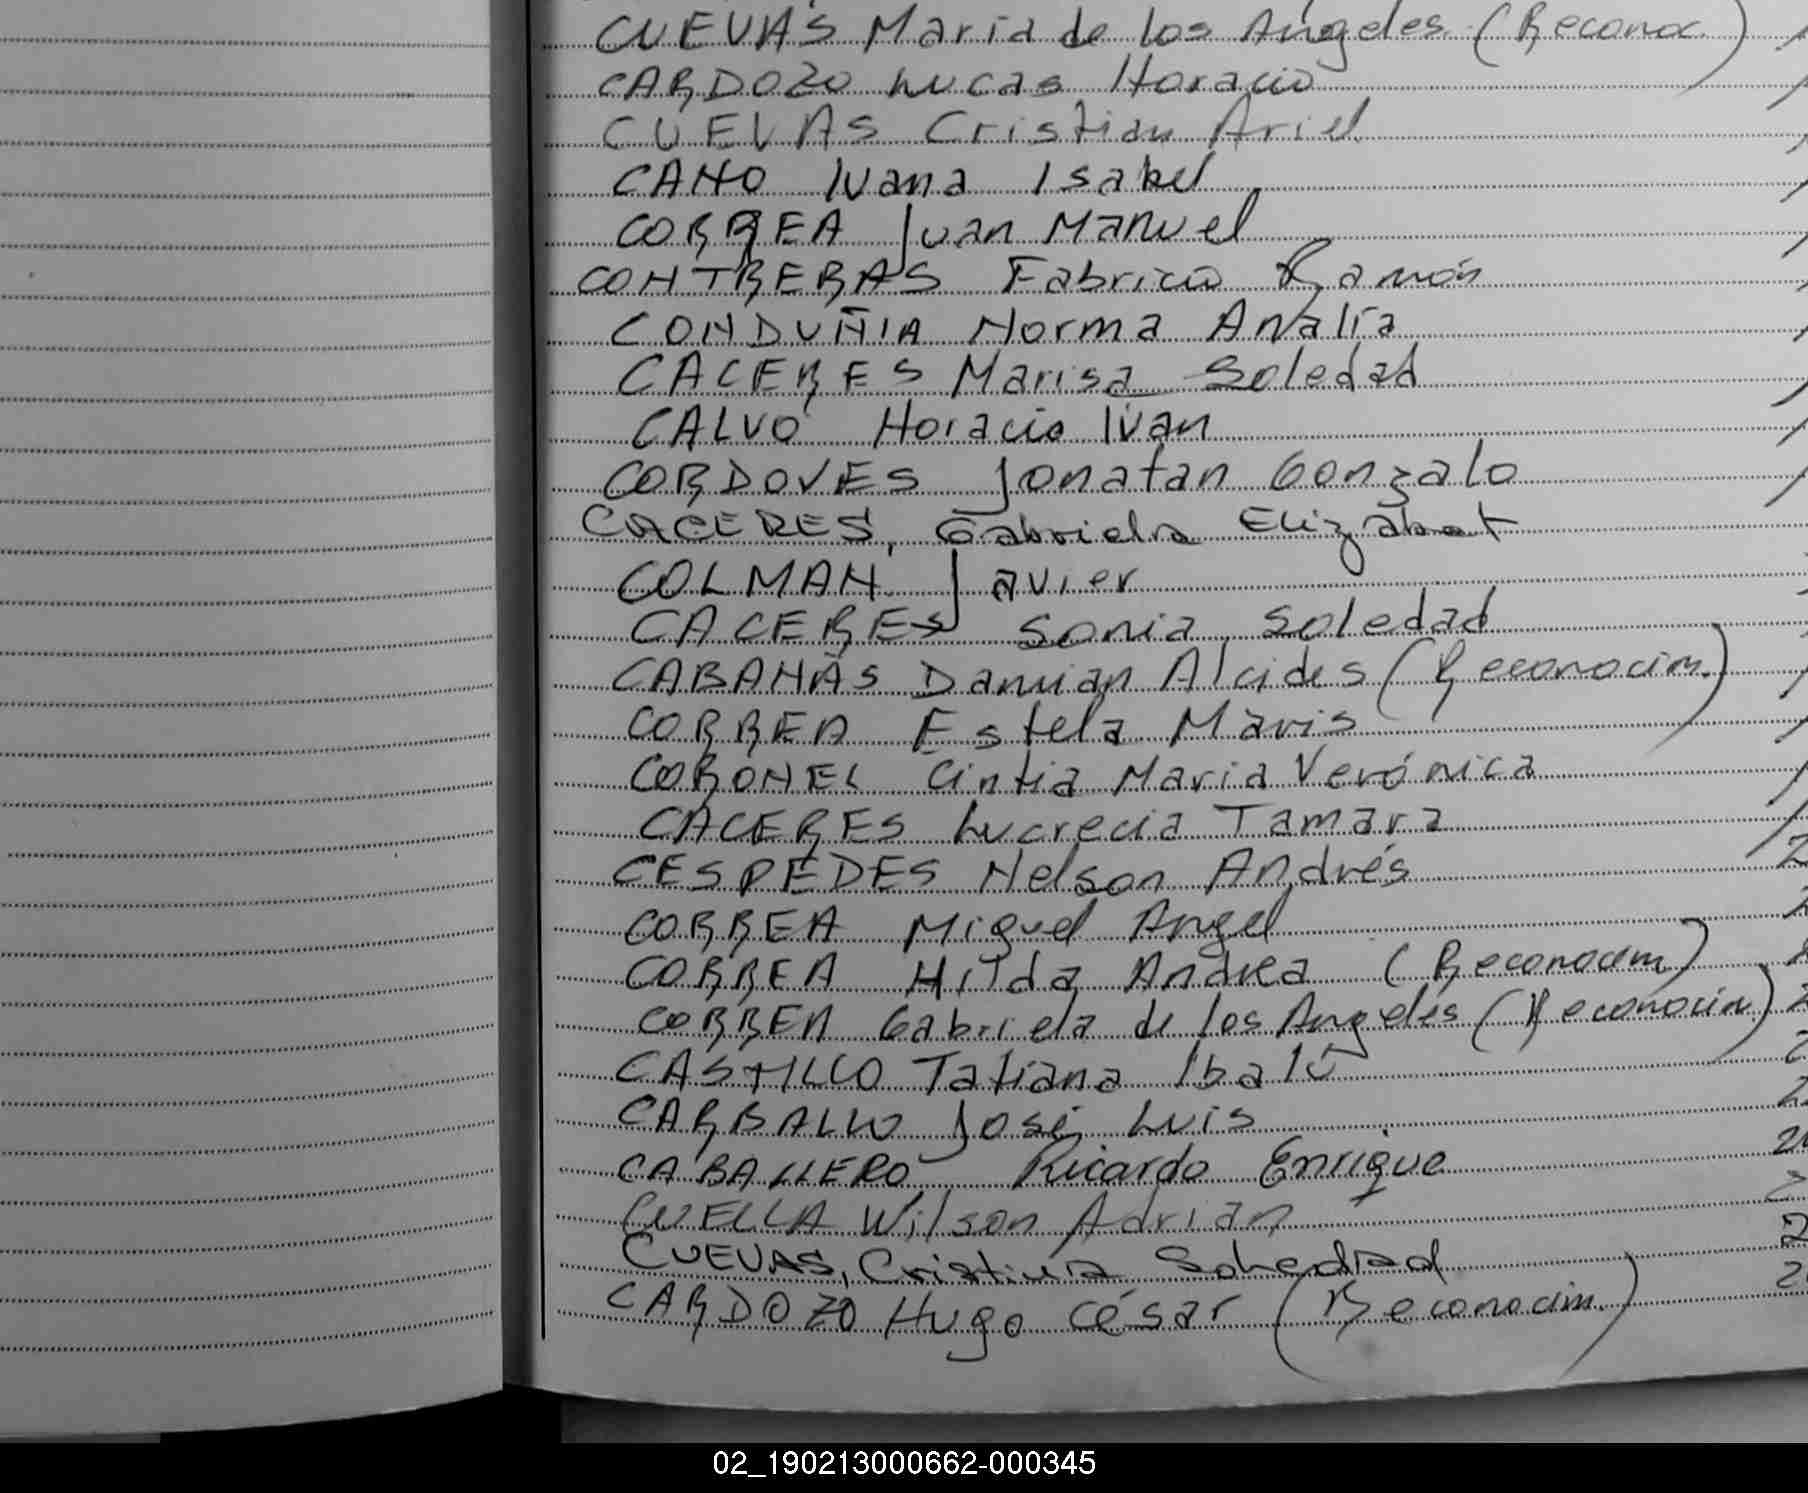 CUEVAS Maria de los Angeles (Reconoc.)
CARDOZO Lucas Horacio
CUEVAS Cristian Ariel
CANO Ivana Isabel
CORREA Juan Manuel
CONTRERAS Fabricio Ramón
CONDUÑIA Norma Analía
CACERES Marisa Soledad
CALVO Horacio Iván
CORDOVES Jonatan Gonzalo
CACERES, Gabriela Elizabet
COLMAN Javier
CACERES Sonia Soledad
CABAÑAS Damian Alcides (Reconocim.)
CORREA Estela Maris
CORONEL Cintia Maria Verónica
CACERES Lucrecia Tamara
CESPEDES Nelson Andrés
CORREA Miguel Angel
CORREA Hilda Andrea (Reconocim)
CORREA Gabriela de los Angeles (Reconocim)
CASTILLO Tatiana Ibalú
CARBALLO José Luis
CABALLERO Ricardo Enrique
CUELLA Wilson Adrián
CUEVAS, Cristina Soledad
CARDOZO Hugo César (Reconocim.)
02_190213000662-000345